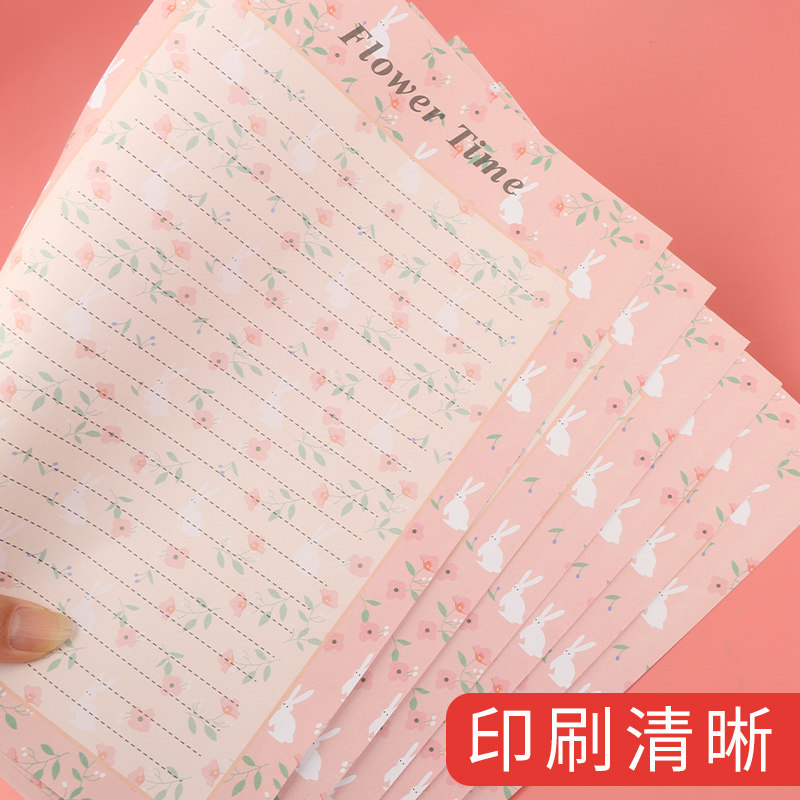 Flower Time
印刷清晰